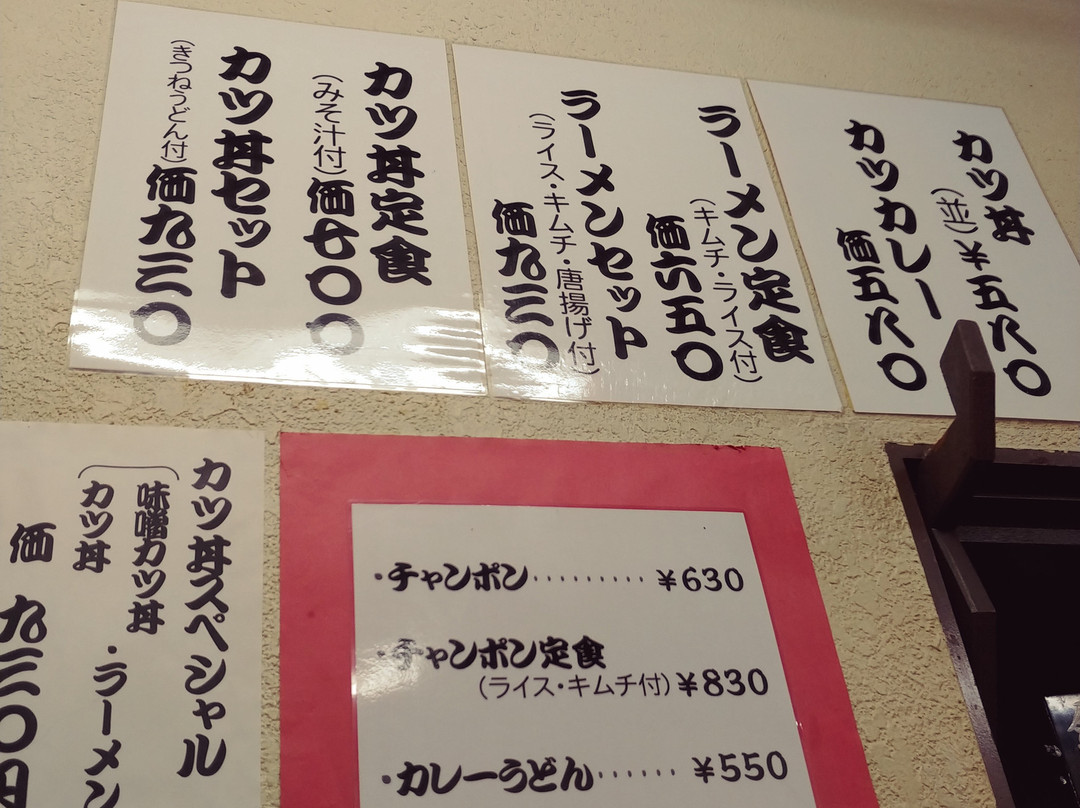 カツ丼
(並)¥五八〇
カツカレー
価五八〇
ラーメン定食
(キムチ・ライス付)
価六五〇
ラーメンセット
(ライス・キムチ・唐揚げ付)
価九三〇
カツ丼定食
(みそ汁付)価七〇〇
カツ丼セット
(きつねうどん付)価九三〇
カツ丼スペシャル
味噌カツ丼・ラーメン
カツ丼
価 九三〇円
・チャンポン·········¥630
・チャンポン定食
(ライス・キムチ付)¥830
・カレーうどん······¥550